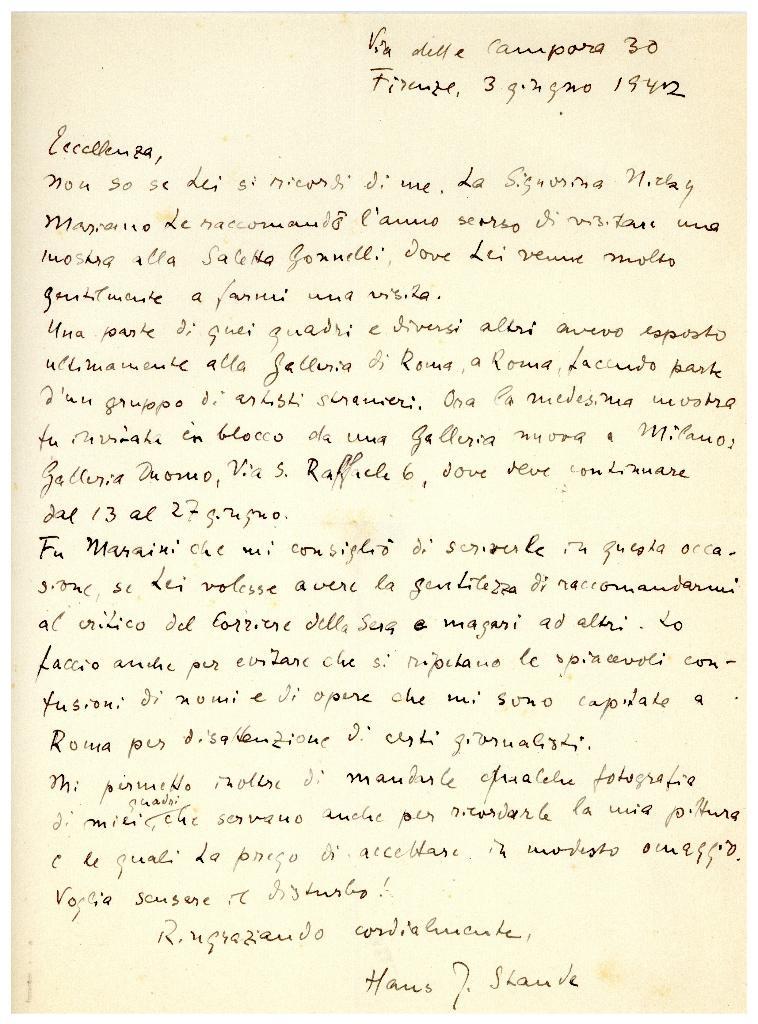 Via delle Campora 30
Firenze, 3 giugno 1942
Eccellenza,
non so se Lei si ricordi di me. La Signorina Nicky
Mariano Le raccomandò l'anno scorso di visitare una
mostra alla Saletta Gonnelli, dove Lei venne molto
gentilmente a farmi una visita.
Una parte di quei quadri e diversi altri avevo esposto
ultimamente alla Galleria di Roma, a Roma, facendo parte
d'un gruppo di artisti stranieri. Ora la medesima mostra
fu invitata in blocco da una Galleria nuova a Milano:
Galleria Duomo, Via S. Raffaele 6, dove deve continuare
dal 13 al 27 giugno.
Fu Maraini che mi consigliò di scriverle in questa occa-
sione, se Lei volesse avere la gentilezza di raccomandarmi
al critico del Corriere della Sera e magari ad altri. Lo
faccio anche per evitare che si ripetano le spiacevoli con-
fusioni di nomi e di opere che mi sono capitate a
Roma per disattenzione di certi giornalisti.
Mi permetto inoltre di mandarle qualche fotografia
di miei quadri, che servano anche per ricordarle la mia pittura
e le quali La prego di accettare in modesto omaggio.
Voglia scusare il disturbo!
Ringraziando cordialmente,
Hans J. Staude